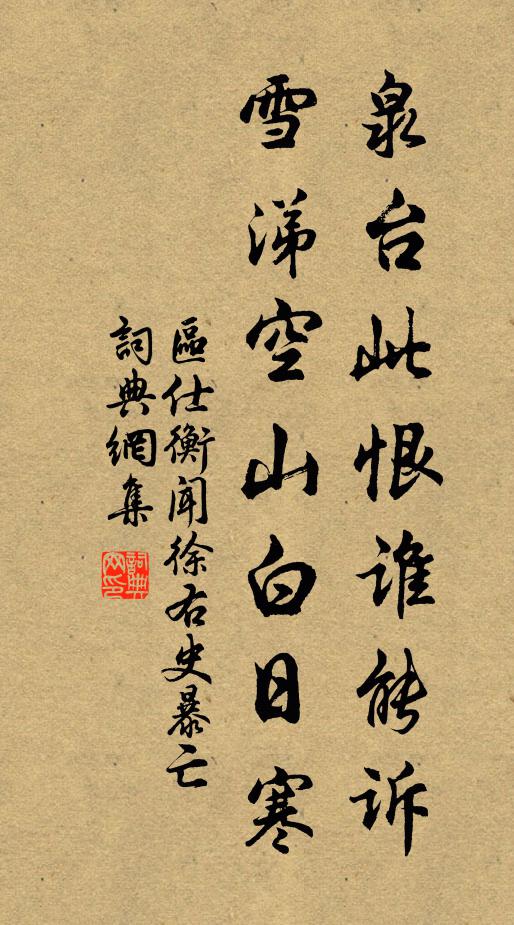 泉台此恨谁能诉
雪涕空山白日寒
區仕衡聞徐右史暴亡
詞典網集
詞典网印